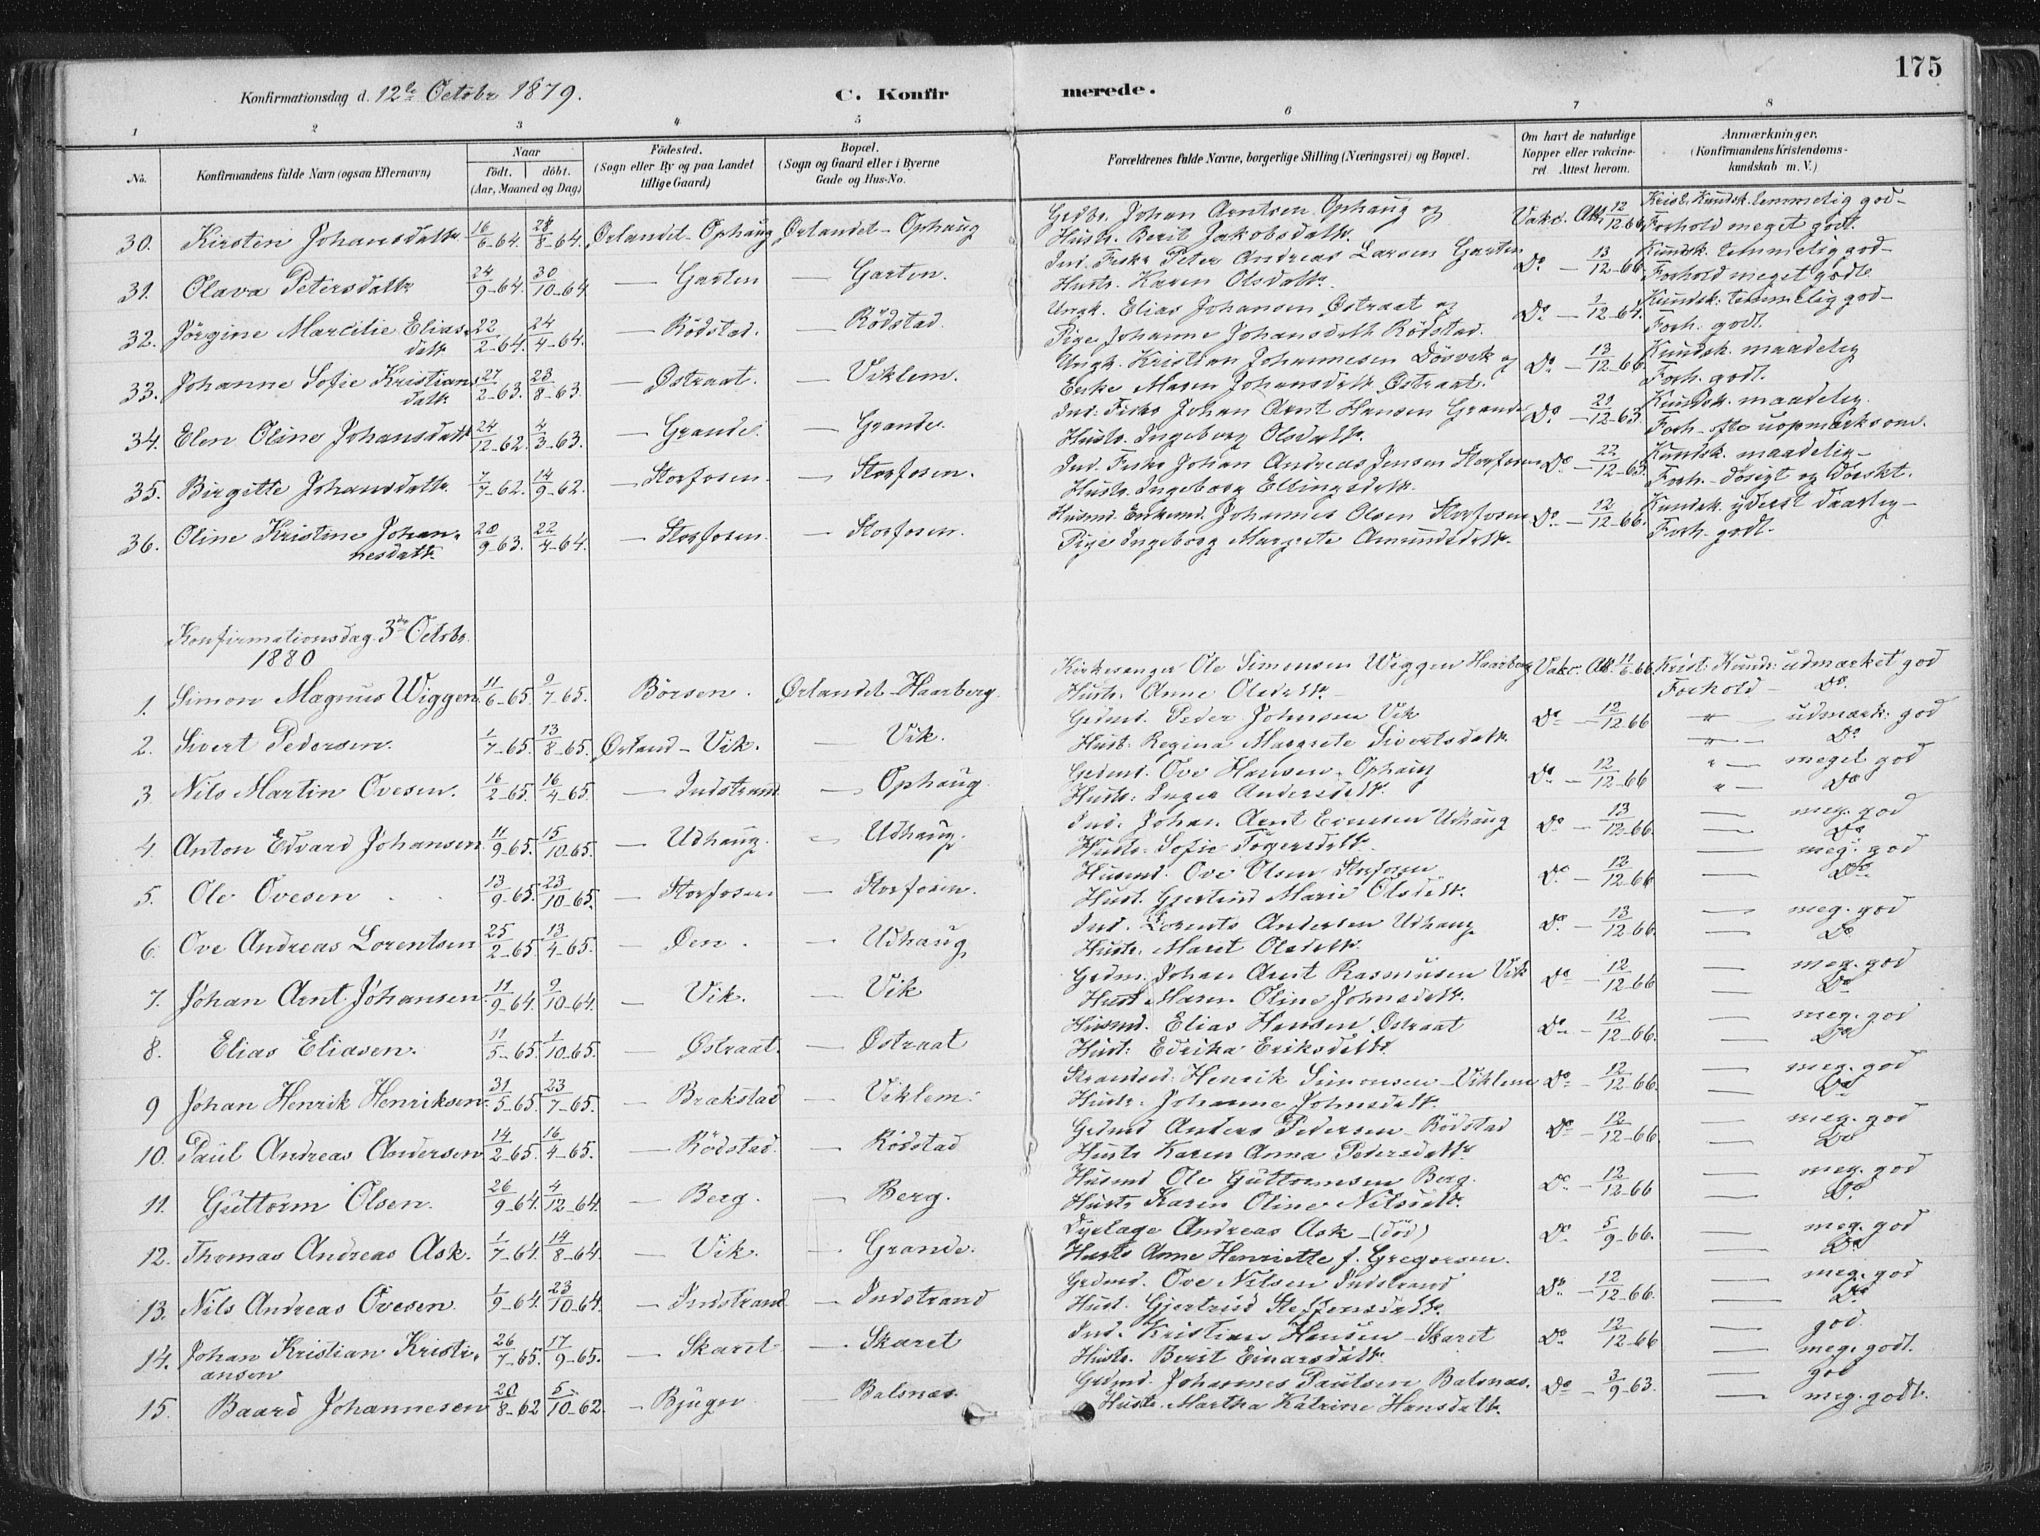 175
Konfirmationsdag d. 12te Octobr 1879. C. Konfirmerede.
1 2 3 4 5 6 7 8
No. Konfirmandens fulde Navn (ogsaa Efternavn) Naar födt. döbt. (Aar, Maaned og Dag) Födested. (Sogn eller By og paa Landet tillige Gaard) Bopæl. (Sogn og Gaard eller i Byerne Gade og Hus-No. Forældrenes fulde Navne, borgerlige Stilling (Næringsvei) og Bopæl. Om havt de naturlige Kopper eller vakcineret Attest herom. Anmærkninger. (Konfirmandens Kristendomskundskab m. V.)
30. Kirsten Johansdatr. 16/6-64. 28/8-64. Ørlandet-Ophaug Ørlandet-Ophaug Gedbr. Johan Arntsen Ophaug og Vakc. Att. 12/12-66 Krist. Kundsk. temmelig god-
Hustr. Berit Jakobsdatr. Forhold meget godt.
31. Olava Petersdatr 24/9-64. 30/10-64 — Garten — Garten. Ind. Fiskr Peter Andreas Larsen Garten Do - 13/12-66. Kundsk. temmelig god-
Hustr. Karen Olsdatr. Forhold meget godt
32. Jørgine Marcilie Eliasdatr 22/2-64. 24/4-64. — Rödstad. — Rödstad. Ungk. Elias Johansen Østraat og Do - 1/12-64. Kundsk: temmelig god-
Pige Johanne Johansdatr Rödstad. Forh. godt.
33. Johanne Sofie Kristiansdatr 27/2-63. 23/8-63. — Østraat. — Viklem. Ungk. Kristian Johannesen Døsvik og Do - 13/12-66. Kundsk. maadelig
Enke Maren Johansdatr Østraat. Forh. godt.
34. Elen Oline Johansdatr 24/12-62. 4/3-63. — Grande. — Grande. Ind: Fiskr Johan Arnt Hansen Grande Do - 21/12-63. Kundsk. maadelig.
Hustr. Ingeborg Olsdatr. Forh. ofte uopmærksom.
35. Birgitte Johansdatr. 7/7-62. 14/9-62. — Storfosen. — Storfosen. Ind. Fiskr Johan Andreas Jensen Storfosen Do - 22/12-63. Kundsk. maadelig-
Hustr. Ingeborg Ellingsdatr. Forh. - dösigt og dorskt.
36. Oline Kristine Johannesdatr. 28/9-63. 22/4-64. — Storfosen. — Storfosen. Husmd. Enkemd. Johannes Olsen Storfosen Do - 12/12-66. Kundsk. yderst daarlig-
Pige Ingeborg Margrete Amundsdatr. Forh. godt.
Konfirmationsdag 3die Octobr.
1880
1. Simon Magnus Wiggen. 11/6-65. 9/7-65. Börsen. Ørlandet-Haarberg. Kirkesanger Ole Simonsen Wiggen Haarberg Vakc. Att. 11/6-66. Krist: Kunds: udmærket god
Hustr. Anne Olsdatr. Forhold - Do
2. Sivert Pedersen. 1/7-65. 13/8-65. Ørland-Vik. — Vik. Gedmd. Peder Johnsen Vik Do - 12/12-66 " - udmærk: god
Hust: Regina Margrete Sivertsdatr. " - Do
3 Nils Martin Ovesen. 16/2-65. 16/4-65. — Indstrand — Ophaug. Gedmd. Ove Hansen. Ophaug Do - 12/12-66 " - meget god
Hustr: Inger Andersdatr. " - Do
4. Anton Edvard Johansen. 11/9-65. 15/10-65. — Udhaug. — Udhaug. Ind. Johan Arnt Eriksen Udhaug Do - 13/12-66. — meg. god
Hustr. Sofie Togersdatr. — Do
5. Ole Ovesen 13/9-65. 23/10-65. — Storfosen — Storfosen. Husmd. Ove Olsen Storfosen Do - 12/12-66 — meg. god
Hust. Gjertrud Marie Olsdatr. — Do
6. Ove Andreas Lorentsen 25/2-65. 13/4-65. — Øen. — Udhaug Ind. Lorents Andersen Udhaug Do - 13/12-66. — meg. god
Hustr. Maret Olsdatr. — Do
7. Johan Arnt Johansen. 11/9-64. 9/10-64. — Vik. — Vik Gedm. Johan Arnt Rasmusen Vik Do - 12/12-66 — meg. god
Hust. Maren Oline Johnsdatr. — Do
8. Elias Eliasen. 11/5-65. 1/10-65. — Østraat. — Østraat Husmd. Elias Hansen Østraat Do - 12/12-66. — meg. god
Hust: Edrika Eriksdatr. — Do
9 Johan Henrik Henriksen. 31/5-65. 23/7-65. — Brækstad — Viklem. Strandsd: Henrik Simonsen - Viklem Do - 12/12-66. — meg. god
Hustr. Johanne Johnsdatr. — Do
10. Paul Andreas Andersen 14/2-65. 16/4-65. — Rödstad. — Rödstad Gedmd Anders Pedersen - Rödstad Do - 12/12-66. — meg. god
Hustr Karen Anna Petersdatr. — Do
11. Guttorm Olsen. 26/9-64. 4/12-64. — Berg. — Berg. Husmd Ole Guttormsen Berg. Do - 12/12-66 — meg. god
Hustr Karen Oline Nilsdatr. — Do
12. Thomas Andreas Ask. 1/7-64. 14/8-64. — Vik. — Grande. Dyrlæge Andreas Ask - (död) Do 5/9-66. — meg. god
Hustr Anne Henriette f. Gregersen. — Do
13. Nils Andreas Ovesen. 1/9-64. 23/10-64. — Indstrand — Indstrand Gedmd. Ove Nilsen Indstrand Do - 12/12-66. — meg. god
Hust. Gjertrud Steffensdatr. — Do
14. Johan Kristian Kristiansen 26/7-65. 17/9-65. — Skaret — Skaret Ind. Kristian Hansen - Skaret Do - 12/12-66 — god
Hustr. Berit Einarsdatr. — meg. godt.
15. Baard Johannesen 20/8-62 5/10-62. — Bjugn — Balsnæs. Gedmd. Johannes Paulsen Balsnæs. Do - 3/9-63. — god
Hustr. Martha Katrine Hansdatr. — meg. godt.